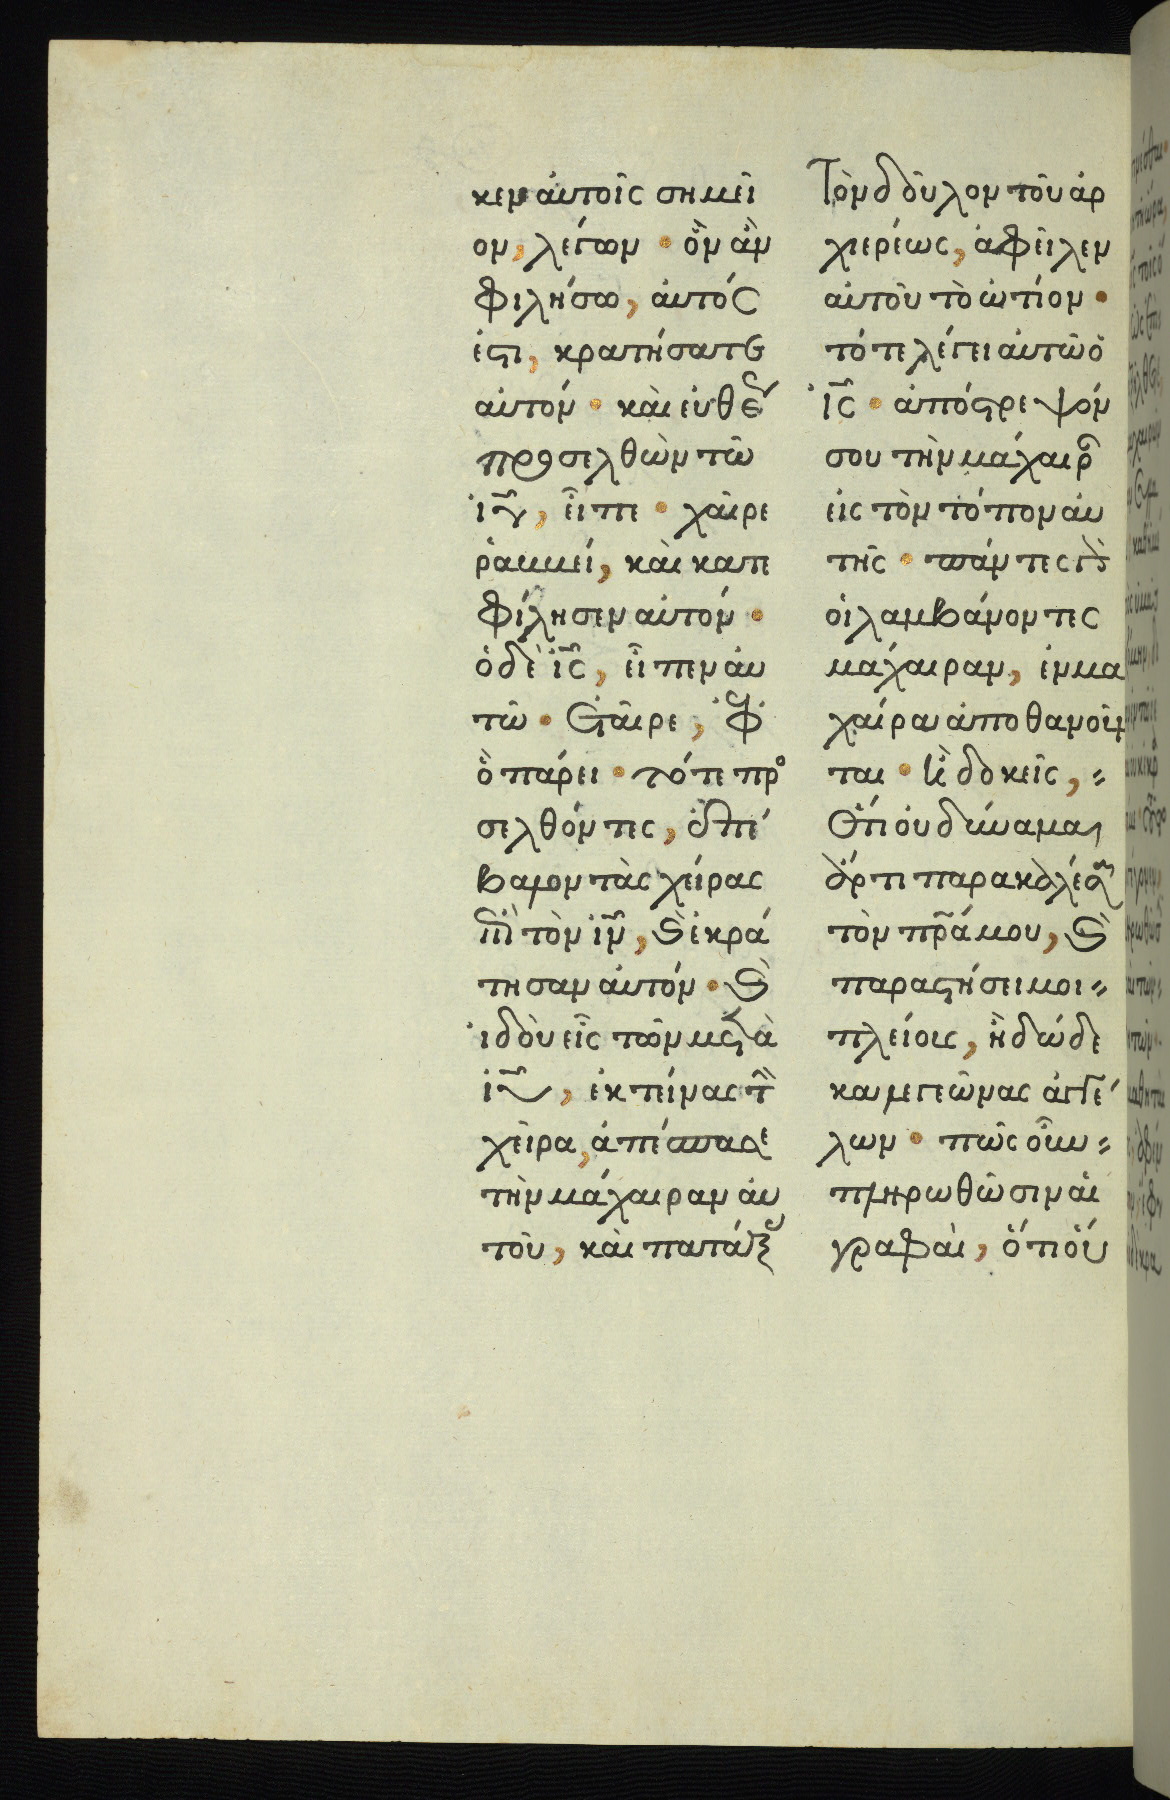 κεν αὐτοῖς σημεῖ
ον, λέγων · ὃν ἂν
φιλήσω, αὐτός
ἐστι, κρατήσατε
αὐτόν · καὶ εὐθέ
προσελθὼν τῶ
ἰῦ, εἶπε · χαῖρε
ῥαββεί, καὶ κατε
φίλησεν αὐτόν ·
ὁ δὲ ἰς, εἶπεν αὐ
τῶ · ἑταῖρε, ἐφ
ὃ πάρει · τότε προ
σελθόντες, ἐπέ
βαλον τὰς χεῖρας
ἐπὶ τὸν ἰν, καὶ ἐκρά
τησαν αὐτόν · καὶ
ἰδοὺ εἷς τῶν μετὰ
ἰῦ, ἐκτείνας τὴν
χεῖρα, ἀπέσπασε
τὴν μάχαιραν αὐ
τοῦ, καὶ πατάξας
Τὸν δοῦλον τοῦ ἀρ
χιερέως, ἀφεῖλεν
αὐτοῦ τὸ ὠτίον ·
τότε λέγει αὐτῶ ὁ
ἰς · ἀπόστρεψόν
σου τὴν μάχαιραν
εἰς τὸν τόπον αὐ
τῆς · πάντες γὰρ
οἱ λαμβάνοντες
μάχαιραν, ἐν μα
χαίρα ἀποθανοῦν
ται · ἢ δοκεῖς,
Ὅτι οὐ δύναμαι
ἄρτι παρακαλέσαι
τὸν πρα μου, καὶ
παραστήσει μοι
πλείους, ἢ δώδε
κα λεγεῶνας ἀγγέ
λων · πῶς οὖν
πληρωθῶσιν αἱ
γραφαὶ, ὅτι οὕ